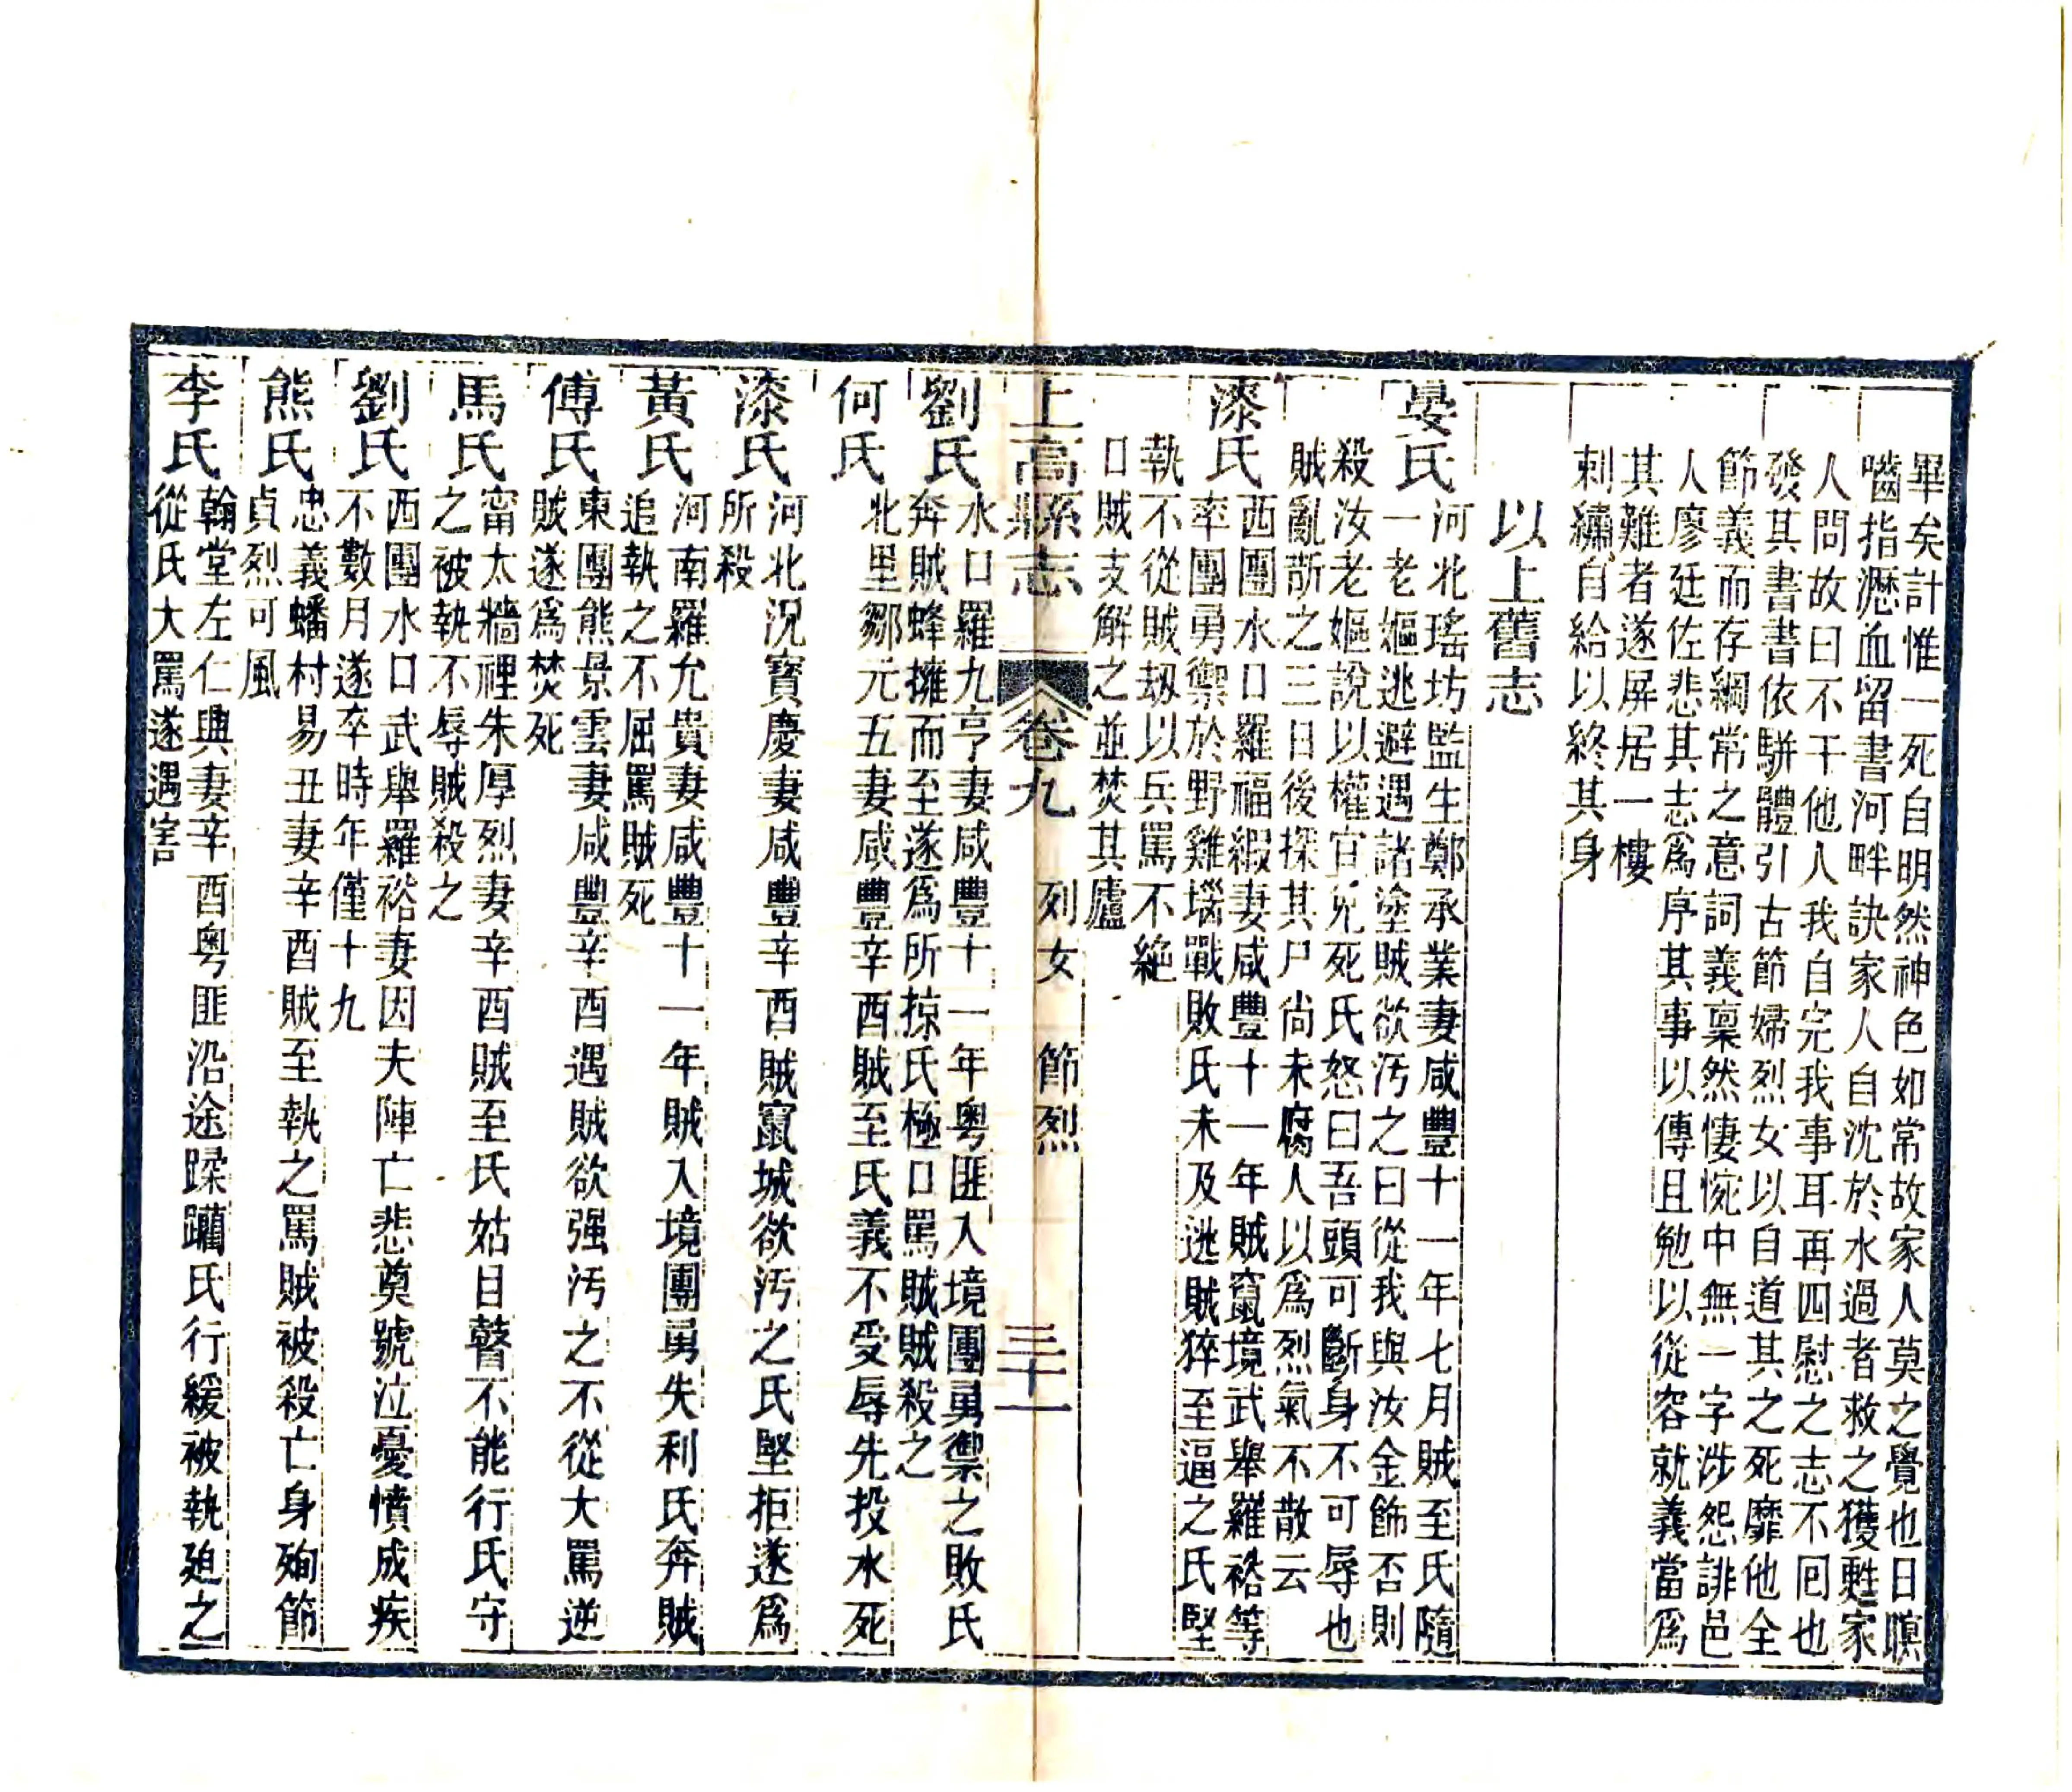 畢矣計惟一死自明然神色如常故家人莫之覺也日暝
嚙指瀝血留書河畔訣家人自沈於水過者救之獲甦家
人問故曰不干他人我自完我事耳再四慰之志不回也
發其書書依駢體引古節婦烈女以自道其之死靡他全
節義而存綱常之意詞義稟然悽惋中無一字涉怨誹邑
人廖廷佐悲其志為序其事以傳且勉以從容就義當為
其難者遂屏居一樓
刺繡自給以終其身
以上舊志
晏氏
河北瑤坊監生鄭承業妻咸豐十一年七月賊至氏隨
一老嫗逃避遇諸塗賊欲汚之曰從我與汝金飾否則
殺汝老嫗說以權宜免死氏怒曰吾頭可斷身不可辱也
賊亂斮之三日後探其尸尚未腐人以為烈氣不散云
漆氏
西團水口羅福緞妻咸豐十一年賊竄境武舉羅袼等
率團勇禦於野雞塅戰敗氏未及逃賊猝至逼之氏堅
執不從賊刼以兵罵不絶
口賊支解之並焚其廬
上高縣志
卷九
列女 節烈
三十一
劉氏
水口羅九亨妻咸豐十一年粤匪入境團勇禦之敗氏
奔賊蜂擁而至遂為所掠氏極口罵賊賊殺之
何氏
北里鄒元五妻咸豐辛酉賊至氏義不受辱先投水死
漆氏
河北況寳慶妻咸豐辛酉賊竄城欲汚之氏堅拒遂為
所殺
黃氏
河南羅允貴妻咸豐十一年賊入境團勇失利氏奔賊
追執之不屈罵賊死
傅氏
東團熊景雲妻咸豐辛酉遇賊欲强汚之不從大罵逆
賊遂為焚死
馬氏
甯太牆裡朱厚烈妻辛酉賊至氏姑目瞽不能行氏守
之被執不辱賊殺之
劉氏
西團水口武舉羅袼妻因夫陣亡悲奠號泣憂憤成疾
不數月遂卒時年僅十九
熊氏
忠義蟠村易丑妻辛酉賊至執之罵賊被殺亡身殉節
貞烈可風
李氏
翰堂左仁典妻辛酉粤匪沿途蹂躪氏行緩被執廹之
從氏大罵遂遇害